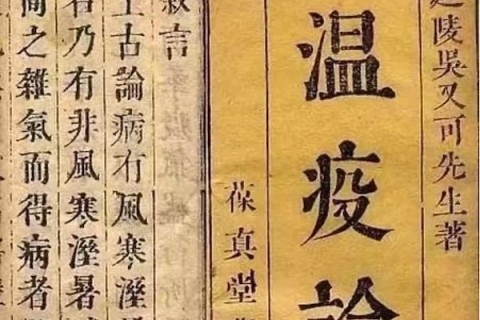 延陵吳又可先生著
温疫論
葆真堂
叙言
上古論病有風寒溼
者乃有非風寒溼暑
間之雜氣而得病者